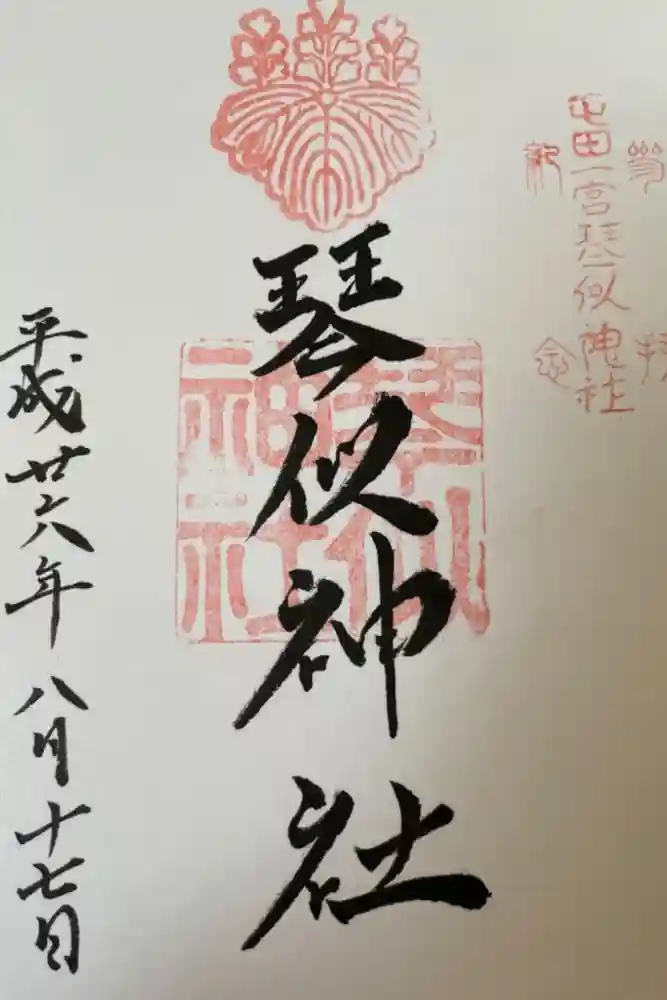 参拝
屯田一宮琴似神社
記念
琴似神社
琴似神社
平成廿六年八月十七日